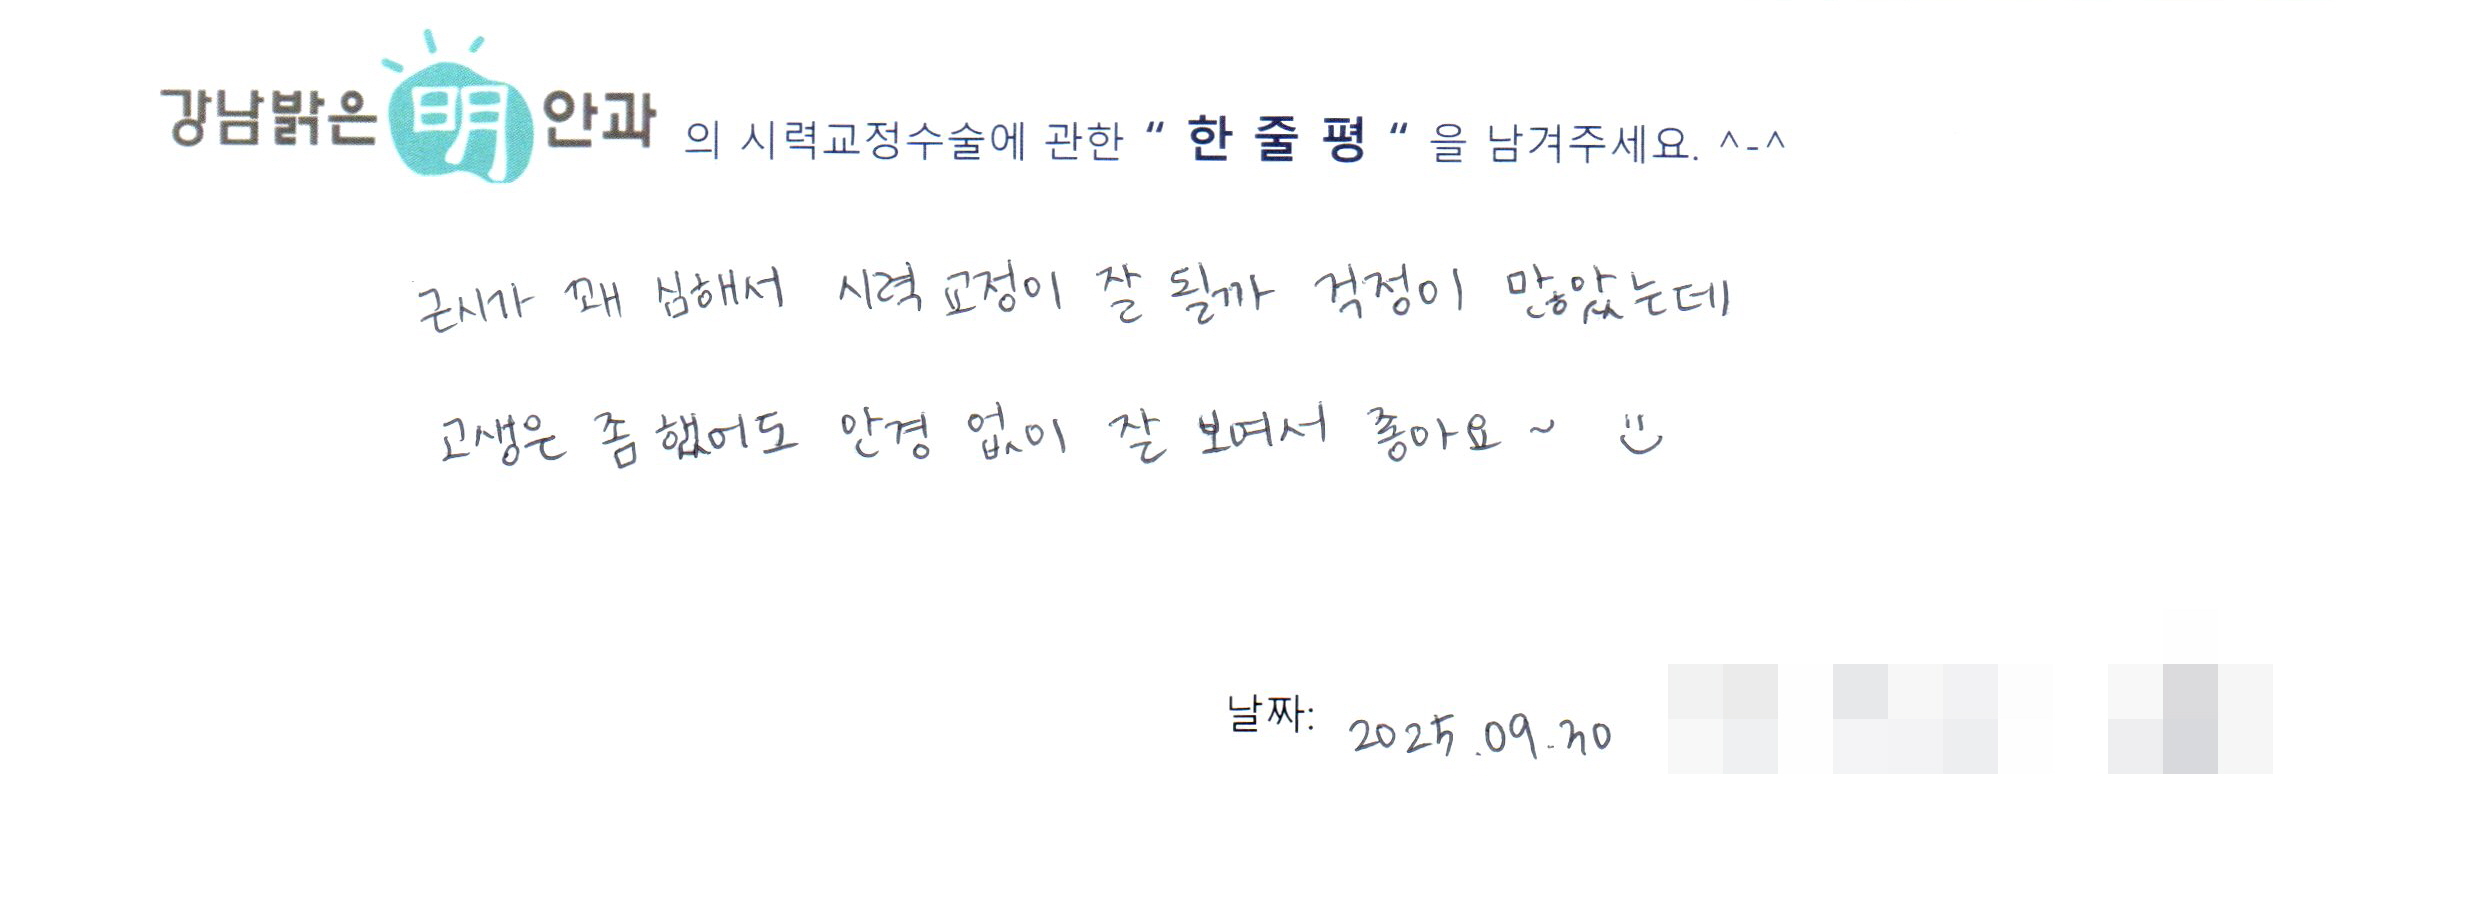 강남밝은明안과 의 시력교정수술에 관한 “ 한 줄 평 “ 을 남겨주세요. ^-^
근시가 꽤 심해서 시력 교정이 잘 될까 걱정이 많았는데
고생은 좀 했어도 안경 없이 잘 보여서 좋아요~ :)
날짜: 2025.09.30